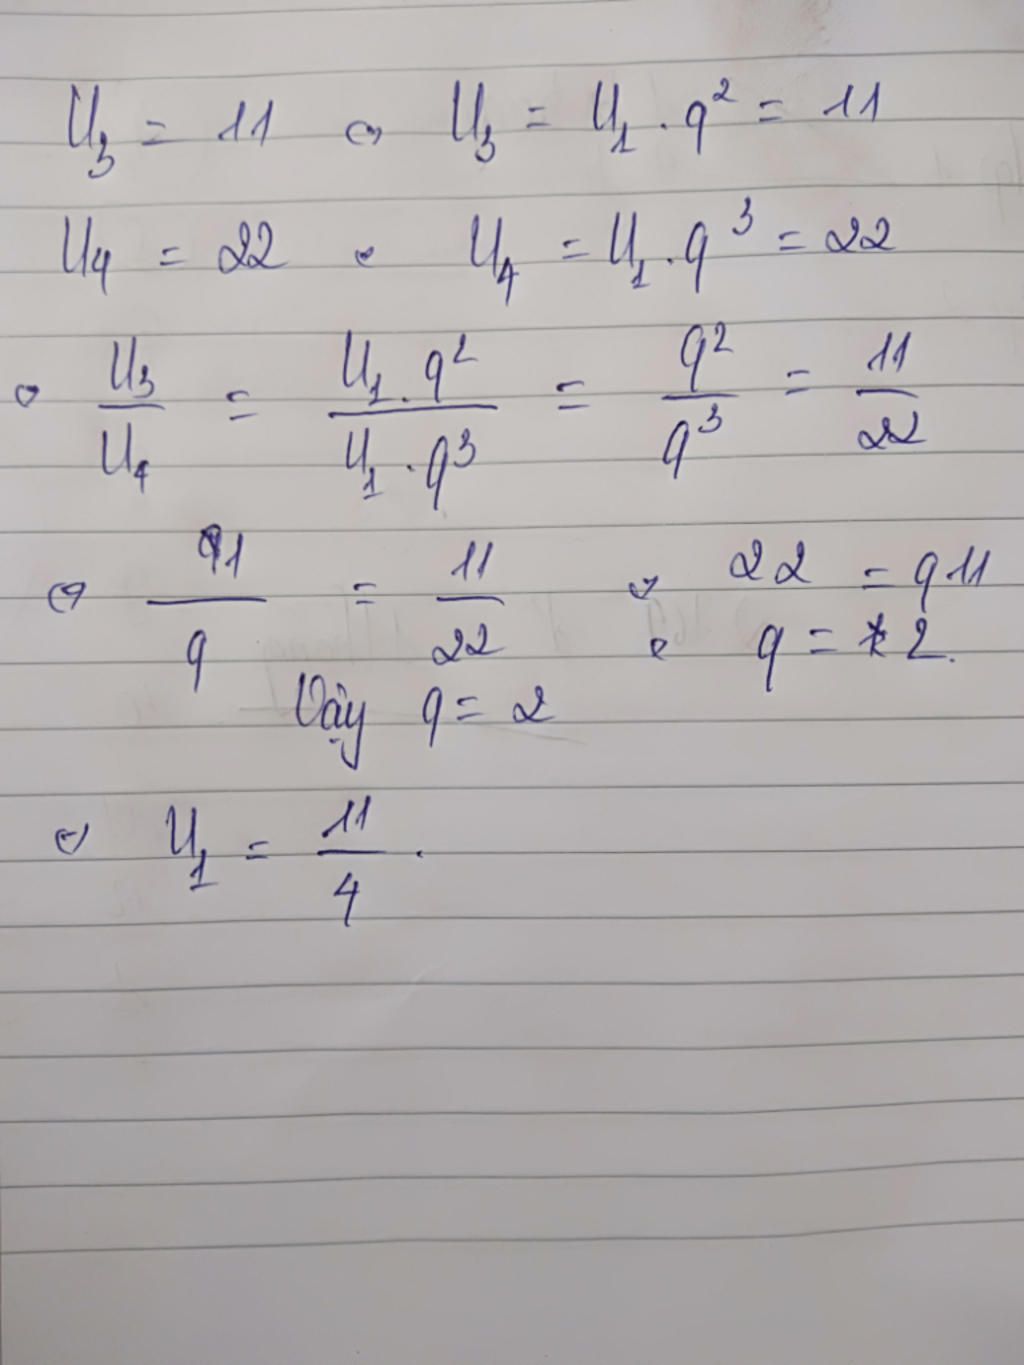 U₃ = 11 ⇔ U₃ = U₁ . q² = 11
U₄ = 22 ⇔ U₄ = U₁ . q³ = 22
⇔ U₃/U₄ = (U₁ . q²)/(U₁ . q³) = q²/q³ = 11/22
⇔ 1/q = 11/22 ⇔ 22 = q11
⇔ q = 2.
Vậy q = 2
⇔ U₁ = 11/4 .